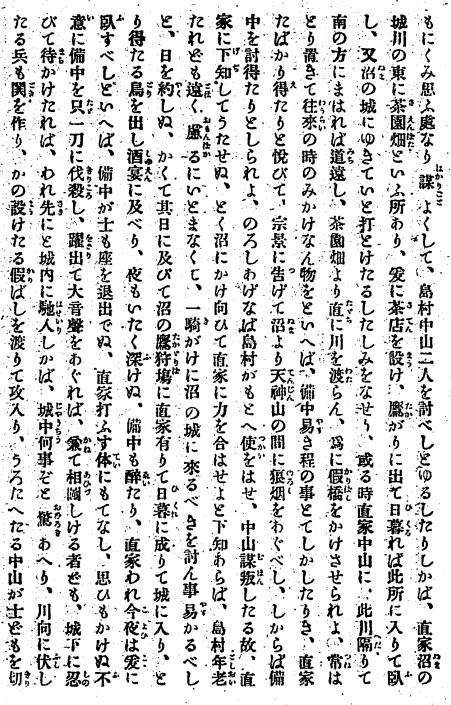 もにくみ思ふ處なり謀よくして、島村中山二人を討べしとゆるしたりしかば、直家沼の
城川の東に茶園畑といふ所あり、爰に茶店を設け、鷹がりに出て日暮れば此所に入りて臥
し、又沼の城にゆきていと打とけたるしたしみをなせり、或る時直家中山に、此川隔りて
南の方にまはれば道遠し、茶園畑より直に川を渡らん、爲に假橋をかけさせられよ、常は
とり置きて往來の時のみかけなん物をといへば、備中易き程の事とてしかしたりき、直家
たばかり得たりと悦びて、宗景に告げて沼より天神山の間に狼烟をあぐべし、しからば備
中を討得たりとしられよ、のろしあげなば島村がもとへ使をはせ、中山謀叛したる故、直
家に下知してうたせぬ、とく沼にかけ向ひて直家に力を合はせよと下知あらば、島村年老
たれども遠く慮るにいとまなくて、一騎がけに沼の城に來るべきを討ん事易かるべし
と、日を約しぬ、かくて其日に及びて沼の鷹狩塲に直家有りて日暮に成りて城に入り、と
り得たる鳥を出し酒宴に及べり、夜もいたく深けぬ、備中も醉たり、直家われ今夜は爰に
臥すべしといへば、備中が士も座を退出でぬ、直家打ふす体にもてなし、思ひもかけぬ不
意に備中を只一刀に伐殺し、躍出て大音聲をあぐれば、兼て相圖しける者ども、城下に忍
びて待かけたれば、われ先にと城内に馳入しかば、城中何事ぞと驚あへり、川向に伏し
たる兵も鬨を作り、かの設けたる假ばしを渡りて攻入り、うろたへたる中山が士どもを切